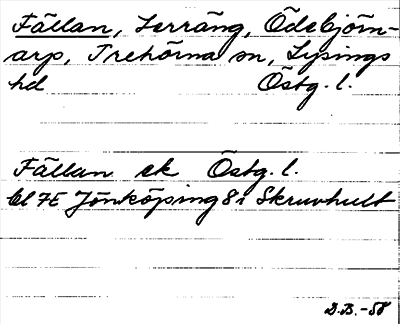 Fällan, Serräng, Ödebjörn-
arp, Trehörna sn, Lysings
hd Östg. l.
Fällan ek Östg. l.
Bl 7E Jönköping 8i Skruvhult
D.B.-58